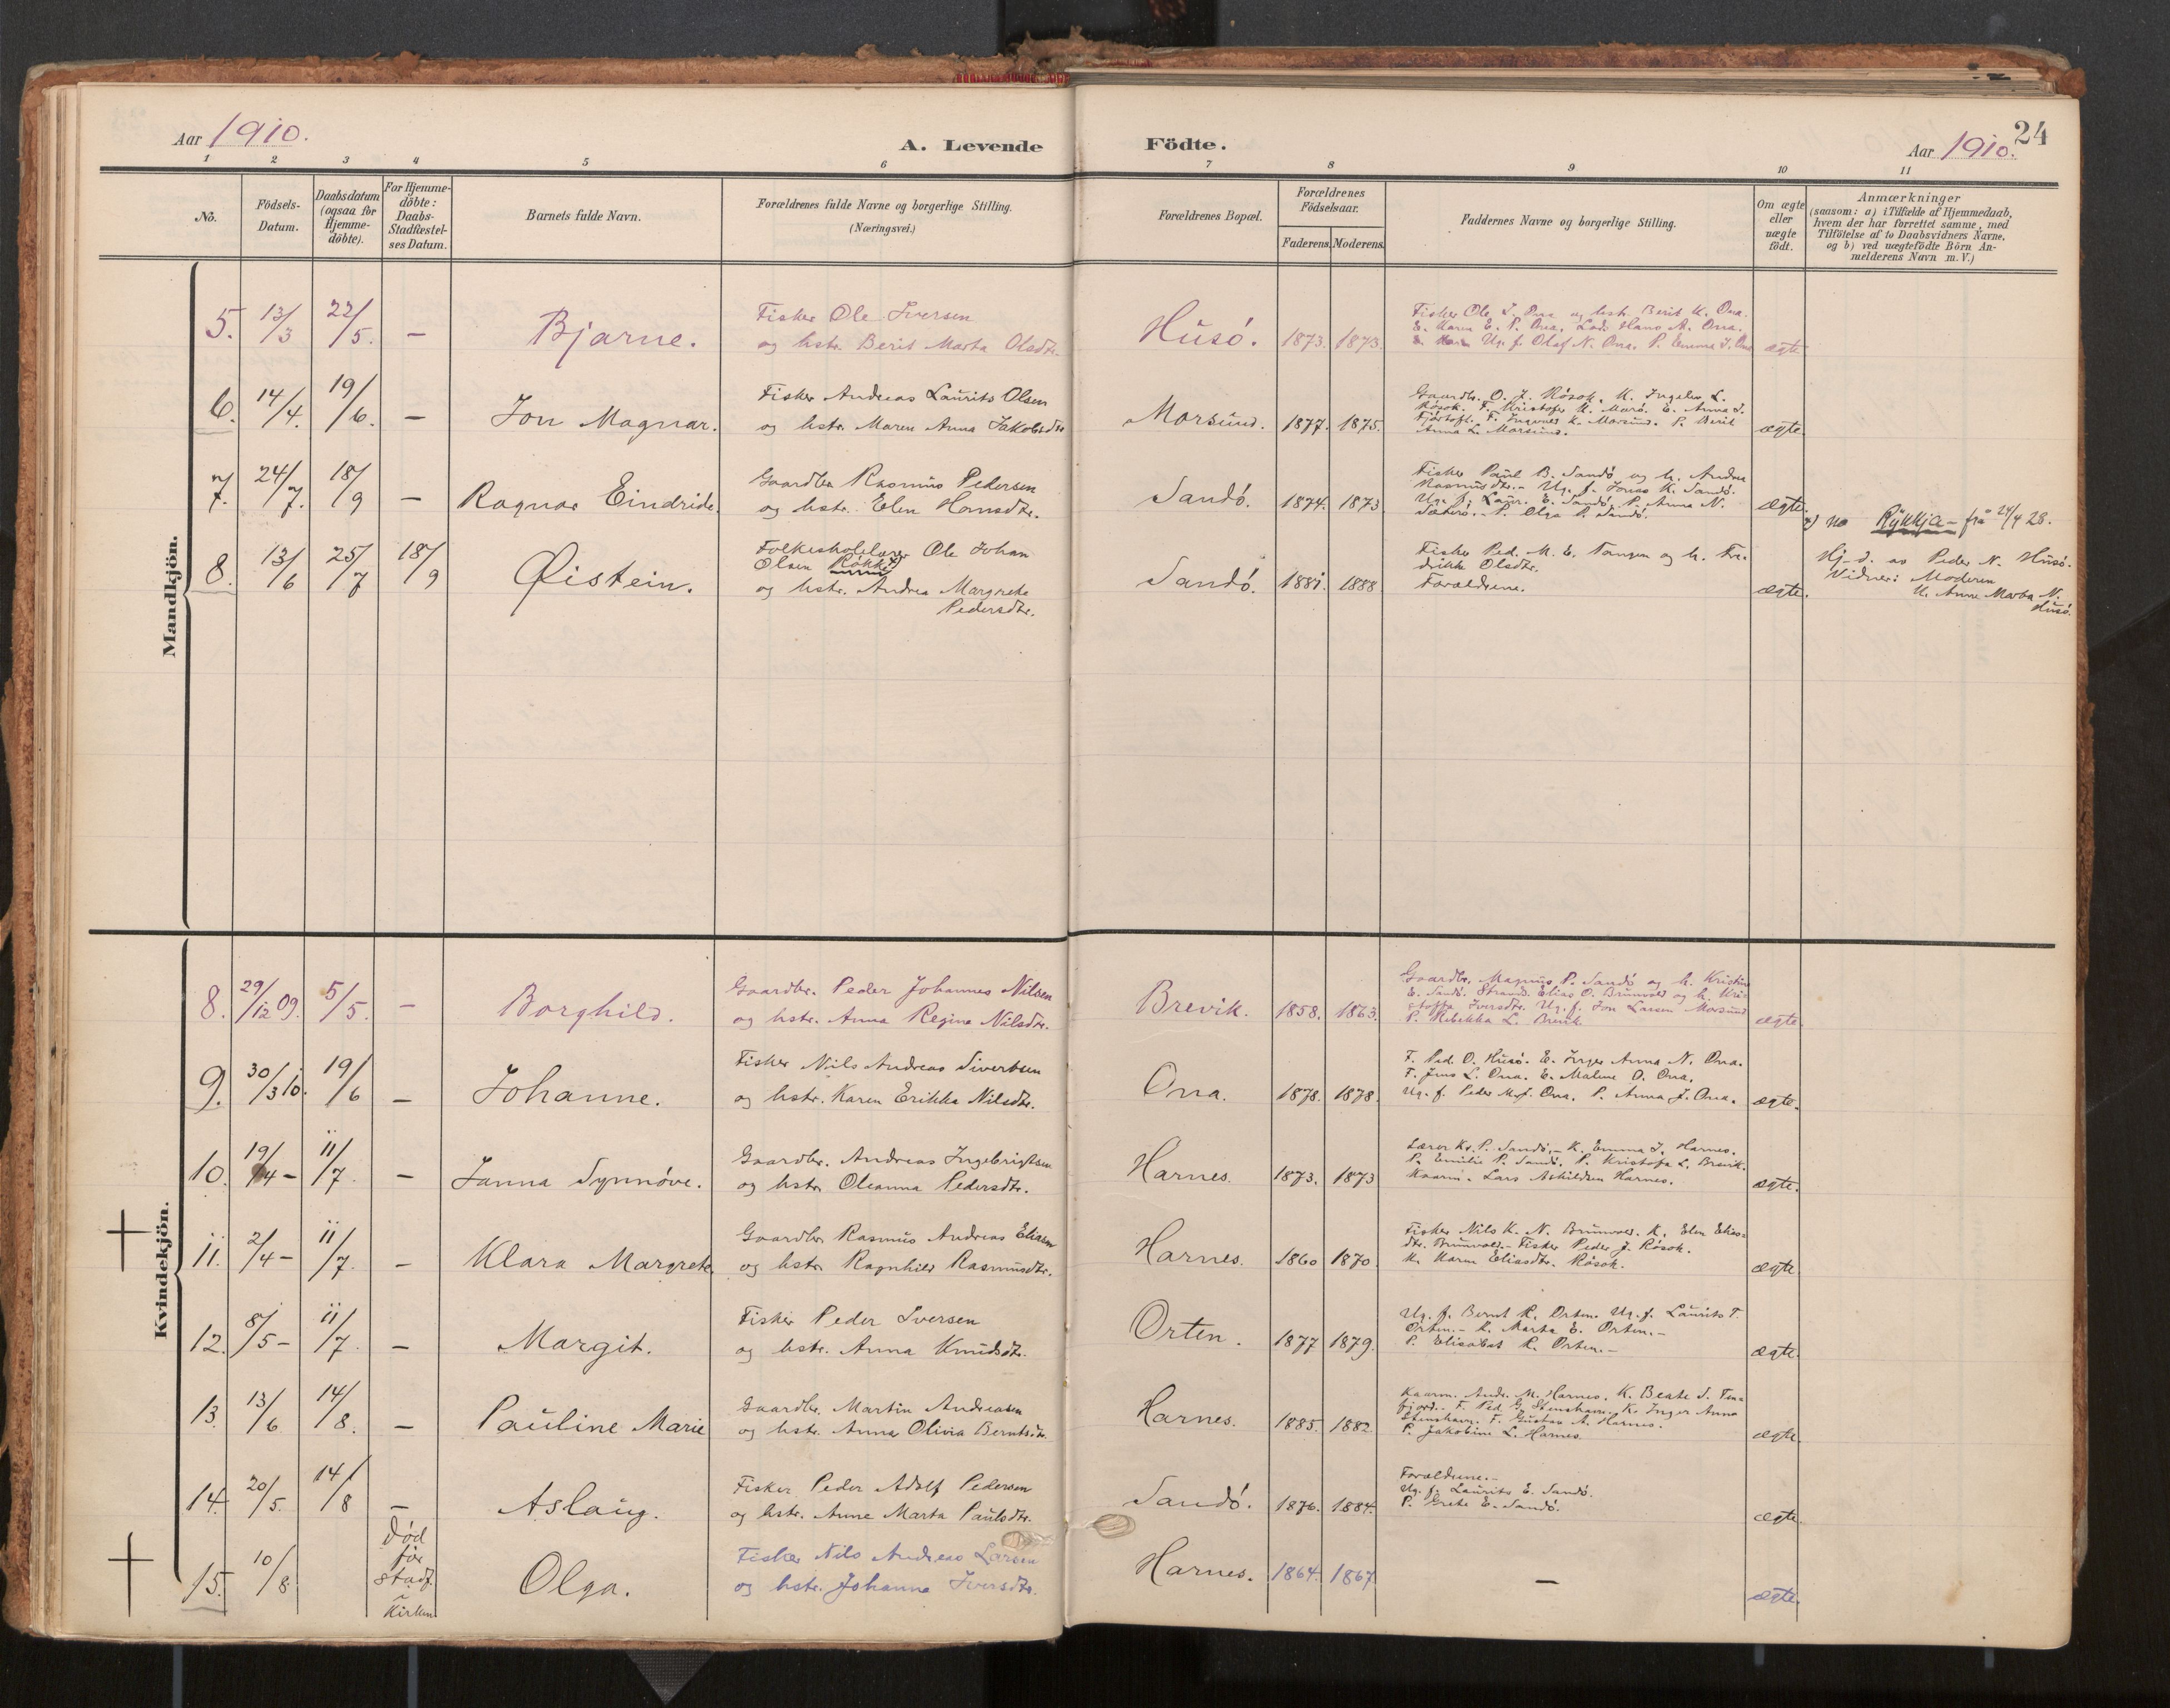 Aar 1910.
A. Levende Födte.
24
Aar 1910.
1 2 3 4 5 6 7 8 9 10 11
No.
Födsels-
Datum.
Daabsdatum
(ogsaa for
Hjemme-
döbte).
For Hjemme-
döbte:
Daabs-
Stadfæstel-
ses Datum.
Barnets fulde Navn.
Forældrenes fulde Navne og borgerlige Stilling.
(Næringsvei.)
Forældrenes Bopæl.
Forældrenes
Födselsaar.
Faderens. Moderens.
Faddernes Navne og borgerlige Stilling.
Om ægte
eller
uægte
födt.
Anmærkninger
(saasom: a) i Tilfælde af Hjemmedaab,
hvem der har forrettet samme, med
Tilföielse af to Daabsvidners Navne,
og b) ved uægtefödte Börn An-
melderens Navn m. V.)
Mandkjön.
5. 13/3 22/5. – Bjarne.
Fisker Ole Iversen
og hstr. Berit Marta Olsdtr.
Husó. 1873. 1873.
Fisker Ole I. Ona og hstr. Berit K. Ona.
E. Karen E. N. Ona. Lods Hans M. Ona.
Ug. f. Olaf N. Ona. P. Emma I. Ona
ægte
6. 14/4. 19/6. – Jon Magnar.
Fisker Andreas Laurits Olsen
og hstr. Maren Anna Jakobsdtr
Morsund. 1877. 1875.
Gaardbr. O. J. Rósok. K. Ingelev L.
Rósok. F. Kristofer K. Maró. E. Anna I.
Fjórtoft. F. Ingvald K. Morsund. P. Berit
Anna L. Morsund.
ægte.
7. 24/7. 18/9 – Ragnar Eindride.
Gaardbr Rasmus Pedersen
og hstr. Elen Hansdtr.
Sandó. 1874. 1873
Fisker Paul B. Sandó og h. Andrea
Rasmusdtr. – Ug. f. Jonas K. Sandó.
Ug. f. Laur. E. Sandó. P. Anna N.
Sæteró. P. Olga P. Sandó.
ægte.
x) no Rykkja – frå 24/4 28.
8. 13/6 25/7 18/9 Øistein.
Folkeskolelærer Ole Johan
Olsen Rókke x)
og hstr. Andrea Margrete
Pedersdtr.
Sandó. 1881. 1888
Fisker Ped. M. E. Tangen og h. Fre-
drikke Olsdtr.
Forældrene.
ægte.
Hj-d. av Peder N. Husó.
Vidner: Moderen
K. Anne Marta N.
Husó.
Kvindekjön.
8. 29/12 09. 5/5. – Borghild.
Gaardbr. Peder Johannes Nilsen
og hstr. Anna Regine Nilsdtr.
Brevik. 1858. 1863.
Gaardbr. Magnus P. Sandó og h. Kristine
E. Sandó. Strands. Elias O. Brunvold og h. Kri-
stofa Iversdtr. Ug. f. Jon Larsen Morsund
P. Rebekka L. Brevik.
ægte.
9. 30/3 10. 19/6 – Johanne.
Fisker Nils Andreas Sivertsen
og hstr. Karen Erikka Nilsdtr.
Ona. 1878. 1878.
F. Ped. O. Husó. E. Inger Anna N. Ona.
F. Jens L. Ona. E. Malene O. Ona.
Ug. f. Peder M. J. Ona. P. Anna J. Ona.
ægte.
10. 19/4 – 11/7. – Janna Synnóve.
Gaardbr. Andreas Ingebrigtsen
og hstr Oleanna Pedersdtr.
Harnes. 1873. 1873
Lærer Kr. P. Sandó. – K. Emma J. Harnes.
P. Emilie P. Sandó. P. Kristofa L. Brevik.
Kaarm. Lars Askildsen Harnes.
ægte.
11. 2/4 – 11/7. – Klara Margrete
Gaardbr Rasmus Andreas Eliasen
og hstr Ragnhild Rasmusdtr.
Harnes. 1860 1870
Fisker Nils K. N. Brunvold. K. Elen Elias-
dtr. Brunvold. – Fisker Peder J. Rósok.
K. Karen Eliasdtr. Rósok.
ægte.
12. 8/5 – 11/7. – Margit.
Fisker Peder Iversen
og hstr. Anna Knudsdtr.
Orten. 1877 1879.
Ug. f. Bernt K. Orten. Ug. f. Laurits T.
Orten. – K. Marta E. Orten. –
P. Elisabet K. Orten. –
ægte.
13. 13/6 14/8. – Pauline Marie
Gaardbr. Martin Andreasen
og hstr. Anna Olivia Berntsdtr.
Harnes. 1885. 1882.
Kaarm. Andr. M. Harnes. K. Beate S. Ten-
fjord. F. Ped. G. Stenshavn. K. Inger Anna
Stenshavn. F. Gustav A. Harnes.
P. Jakobine L. Harnes.
ægte.
14. 20/5. 14/8 – Aslaug.
Fisker Peder Adolf Pedersen
og hstr. Anne Marta Paulsdtr.
Sandó. 1876. 1884.
Forældrene. –
Ug. f. Laurits E. Sandó.
P. Grete E. Sandó.
ægte.
15. 10/8.
Død
før
stadf.
i
Kirken
Olga.
Fisker Nils Andreas Larsen
og hstr. Johanna Iversdtr.
Harnes. 1864. 1867
–
ægte.